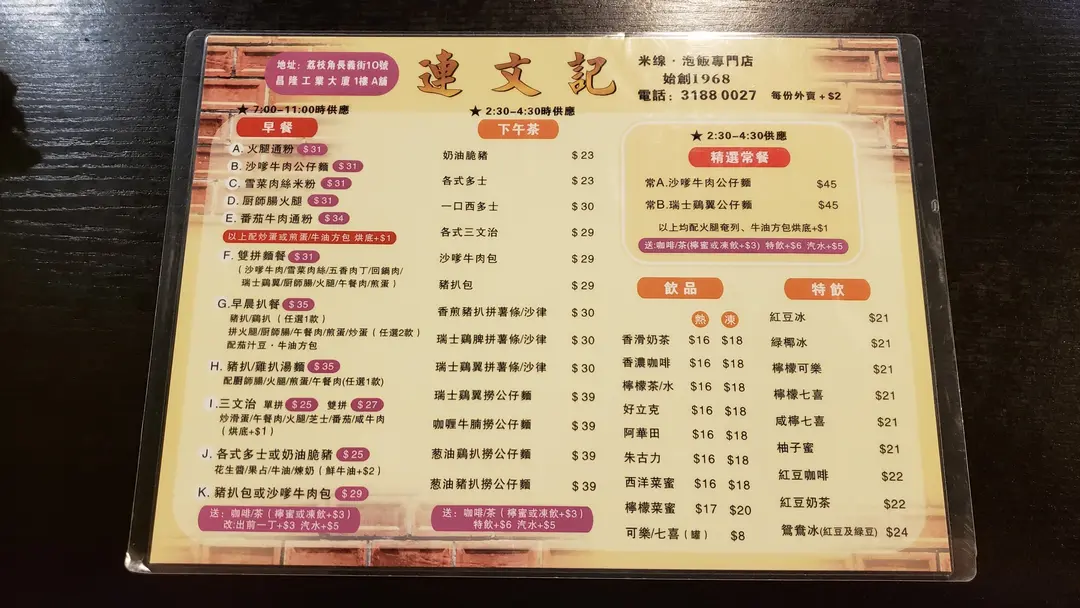 地址：荔枝角長義街10號
昌隆工業大廈1樓A舖
連文記
米線·泡飯專門店
始創1968
電話：3188 0027 每份外賣+$2
★ 7:00-11:00時供應
早餐
A. 火腿通粉 $31
B. 沙嗲牛肉公仔麵 $31
C. 雪菜肉絲米粉 $31
D. 廚師腸火腿 $31
E. 番茄牛肉通粉 $34
以上配炒蛋或煎蛋/牛油方包 烘底+$1
F. 雙拼麵餐 $31
(沙嗲牛肉/雪菜肉絲/五香肉丁/回鍋肉/
瑞士鷄翼/廚師腸/火腿/午餐肉/煎蛋)
G.早晨扒餐 $35
豬扒/鷄扒（任選1款）
拼火腿/廚師腸/午餐肉/煎蛋/炒蛋（任選2款）
配茄汁豆·牛油方包
H. 豬扒/雞扒湯麵 $35
配廚師腸/火腿/煎蛋/午餐肉(任選1款)
I.三文治 單拼 $25 雙拼 $27
炒滑蛋/午餐肉/火腿/芝士/番茄/咸牛肉
（烘底+$1）
J. 各式多士或奶油脆豬 $25
花生醬/果占/牛油/煉奶（鮮牛油+$2）
K. 豬扒包或沙嗲牛肉包 $29
送：咖啡/茶（檸蜜或凍飲+$3）
改:出前一丁+$3 汽水+$5
★ 2:30-4:30時供應
下午茶
奶油脆豬 $23
各式多士 $23
一口西多士 $30
各式三文治 $29
沙嗲牛肉包 $29
豬扒包 $29
香煎豬扒拼薯條/沙律 $30
瑞士鷄脾拼薯條/沙律 $30
瑞士鷄翼拼薯條/沙律 $30
瑞士鷄翼撈公仔麵 $39
咖喱牛腩撈公仔麵 $39
葱油鷄扒撈公仔麵 $39
葱油豬扒撈公仔麵 $39
送：咖啡/茶（檸蜜或凍飲+$3）
特飲+$6 汽水+$5
★ 2:30-4:30供應
精選常餐
常A.沙嗲牛肉公仔麵 $45
常B.瑞士鷄翼公仔麵 $45
以上均配火腿奄列、牛油方包烘底+$1
送:咖啡/茶(檸蜜或凍飲+$3) 特飲+$6 汽水+$5
飲品
熱 凍
香滑奶茶 $16 $18
香濃咖啡 $16 $18
檸檬茶/水 $16 $18
好立克 $16 $18
阿華田 $16 $18
朱古力 $16 $18
西洋菜蜜 $16 $18
檸檬菜蜜 $17 $20
可樂/七喜（罐） $8
特飲
紅豆冰 $21
綠椰冰 $21
檸檬可樂 $21
檸檬七喜 $21
咸檸七喜 $21
柚子蜜 $21
紅豆咖啡 $22
紅豆奶茶 $22
鴛鴦冰(紅豆及綠豆) $24